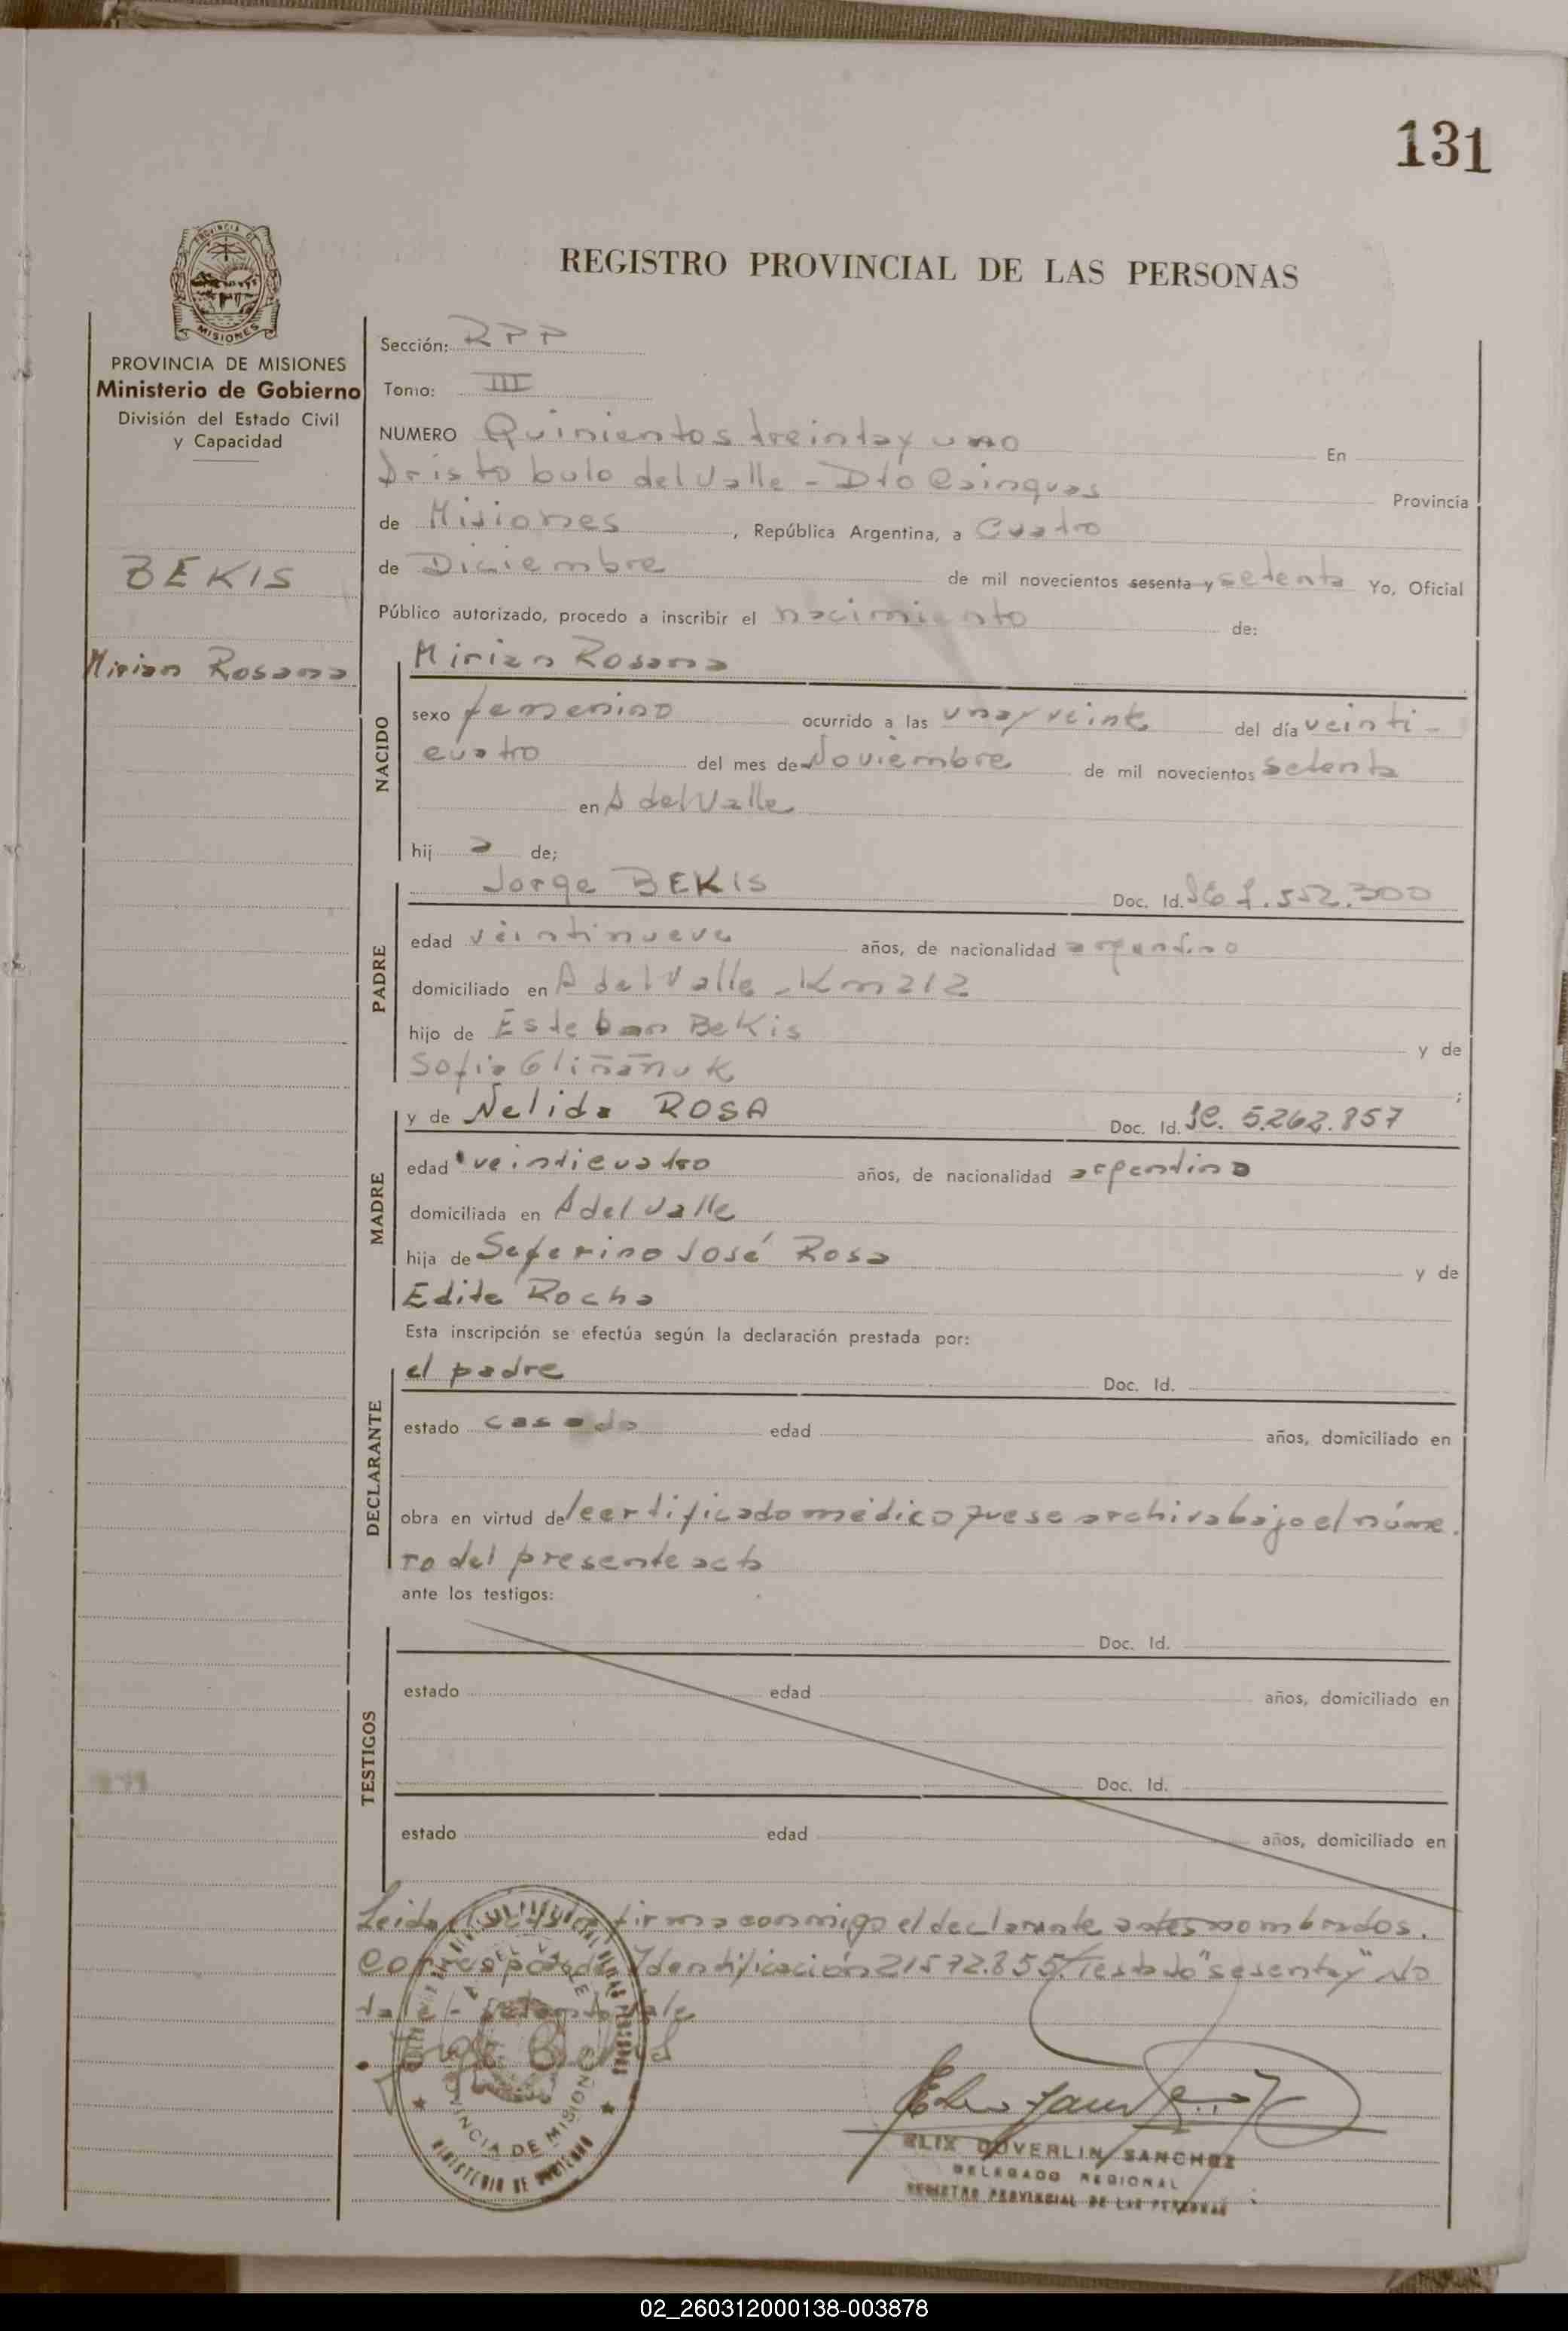 131
REGISTRO PROVINCIAL DE LAS PERSONAS
PROVINCIA DE
MISIONES
PROVINCIA DE MISIONES
Ministerio de Gobierno
División del Estado Civil
y Capacidad
BEKIS
Mirian Rosana
Sección: RPP
Tomo: III
NUMERO Quinientos treinta y uno En
Aristobulo del Valle - Dto Cainguas Provincia
de Misiones, República Argentina, a Cuatro
de Diciembre de mil novecientos sesenta y setenta Yo, Oficial
Público autorizado, procedo a inscribir el nacimiento de:
NACIDO
Mirian Rosana
sexo femenino ocurrido a las una y veinte del día veinti-
cuatro del mes de Noviembre de mil novecientos setenta
en A del Valle
hij a de;
PADRE
Jorge BEKIS Doc. Id. 7.552.300
edad veintinueve años, de nacionalidad argentino
domiciliado en A del Valle - Km 212
hijo de Esteban BeKis y de
Sofia Gliñañuk ;
MADRE
y de Nelida ROSA Doc. Id. 5.262.857
edad veinticuatro años, de nacionalidad argentina
domiciliada en A del Valle
hija de Seferino José Rosa y de
Edite Rocha
Esta inscripción se efectúa según la declaración prestada por:
DECLARANTE
el padre Doc. Id.
estado casado edad años, domiciliado en
obra en virtud del certificado médico que se archiva bajo el núme.
ro del presente acta
ante los testigos:
TESTIGOS
Doc. Id.
estado edad años, domiciliado en
Doc. Id.
estado edad años, domiciliado en
Leida firma conmigo el declarante antes nombrados.
Corresponde Identificación 21572.855/ Testado "sesenta y" No
Vale/- Setenta Vale
Jorge Bekis
A. DEL VALLE
PROVINCIA DE MISIONES
MINISTERIO DE GOBIERNO
ELIX DUVERLIN SANCHEZ
DELEGADO REGIONAL
REGISTRO PROVINCIAL DE LAS PERSONAS
02_260312000138-003878